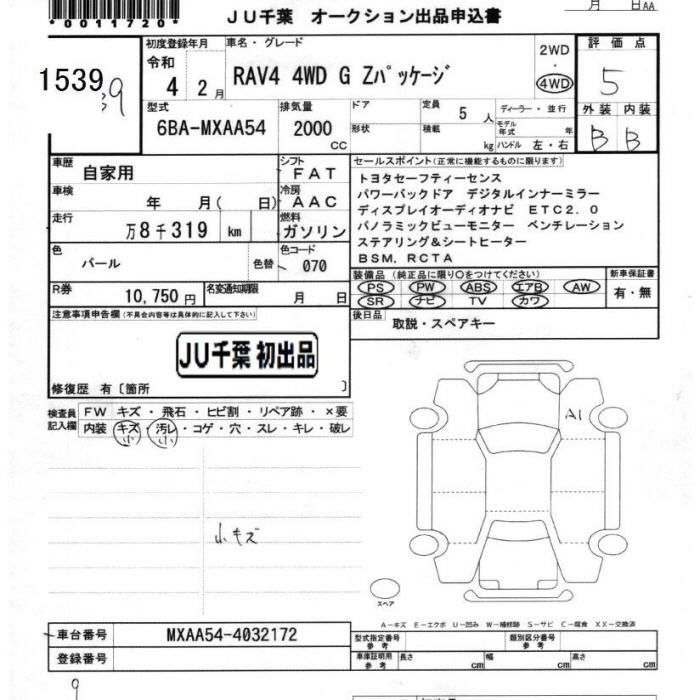 *0011720*
月 日AA
JU千葉 オークション出品申込書
1539
39
初度登録年月
令和
4 2月
車名・グレード
RAV4 4WD G Zパッケージ
2WD
・
4WD
評価点
5
外装 内装
B B
型式
6BA-MXAA54
排気量
2000
cc
ドア
形状
定員 5人
積載 kg
ディーラー・並行
モデル年式 年
ハンドル 左・右
車歴
自家用
シフト
FAT
車検 年 月( 日)
冷房
AAC
走行
万8千319 km
燃料
ガソリン
色
パール
色替
色コード
070
R券 10,750円
名変通知期限 月 日
セールスポイント(正常に機能するものに限ります)
トヨタセーフティーセンス
パワーバックドア デジタルインナーミラー
ディスプレイオーディオナビ ETC2.0
パノラミックビューモニター ベンチレーション
ステアリング&シートヒーター
BSM,RCTA
装備品(純正品に限り○をつけてください)
PS PW ABS エアB AW
SR ナビ TV カワ
新車保証書
有・無
後日品
取説・スペアキー
注意事項申告欄(不具合内容等は具体的に記入して下さい)
JU千葉 初出品
修復歴 有〔箇所 〕
検査員
記入欄
FW キズ・飛石・ヒビ割・リペア跡・×要
内装 キズ・汚レ・コゲ・穴・スレ・キレ・破レ
小 小
小キズ
A1
スペア
A-キズ E-エクボ U-凹み W-補修跡 S-サビ C-腐食 XX-交換済
車台番号 MXAA54-4032172
登録番号
型式指定番号
参考
類別区分番号
参考
車庫証明用
参考
長さ cm 幅 cm 高さ cm
9